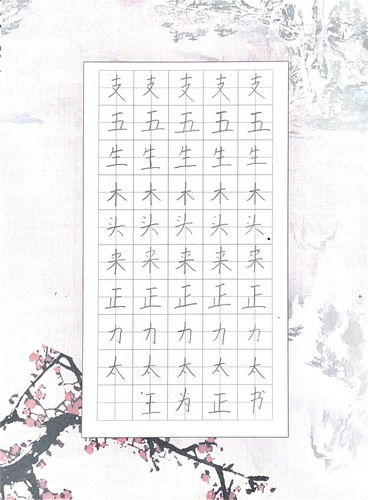 支支支支支
五五五五五
生生生生生
木木木木木
头头头头头
来来来来来
正正正正正
力力力力力
太太太太太
王为正书